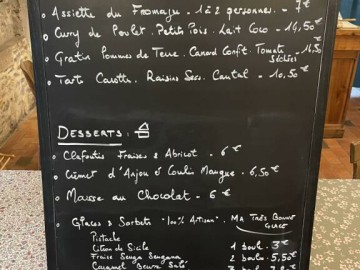 Assiette du Fromager - 1 à 2 personnes - 7€
Curry de Poulet. Petits Pois. Lait Coco - 14,50€
Gratin Pommes de Terre. Canard Confit. Tomate
séchées
Tarte Carotte. Raisins Secs. Cantal - 10,50€
DESSERTS.
Clafoutis Fraises & Abricot - 6€
Crémet d'Anjou & Coulis Mangue - 6,50€
Mousse au Chocolat - 6€
Glaces & Sorbets "100% Artisan". MA TRÈS BONNE
GLACE
Pistache
Citron de Sicile 1 boule. 3€
Fraise Senga Sengana 2 boules. 5,50€
Caramel Beurre Salé